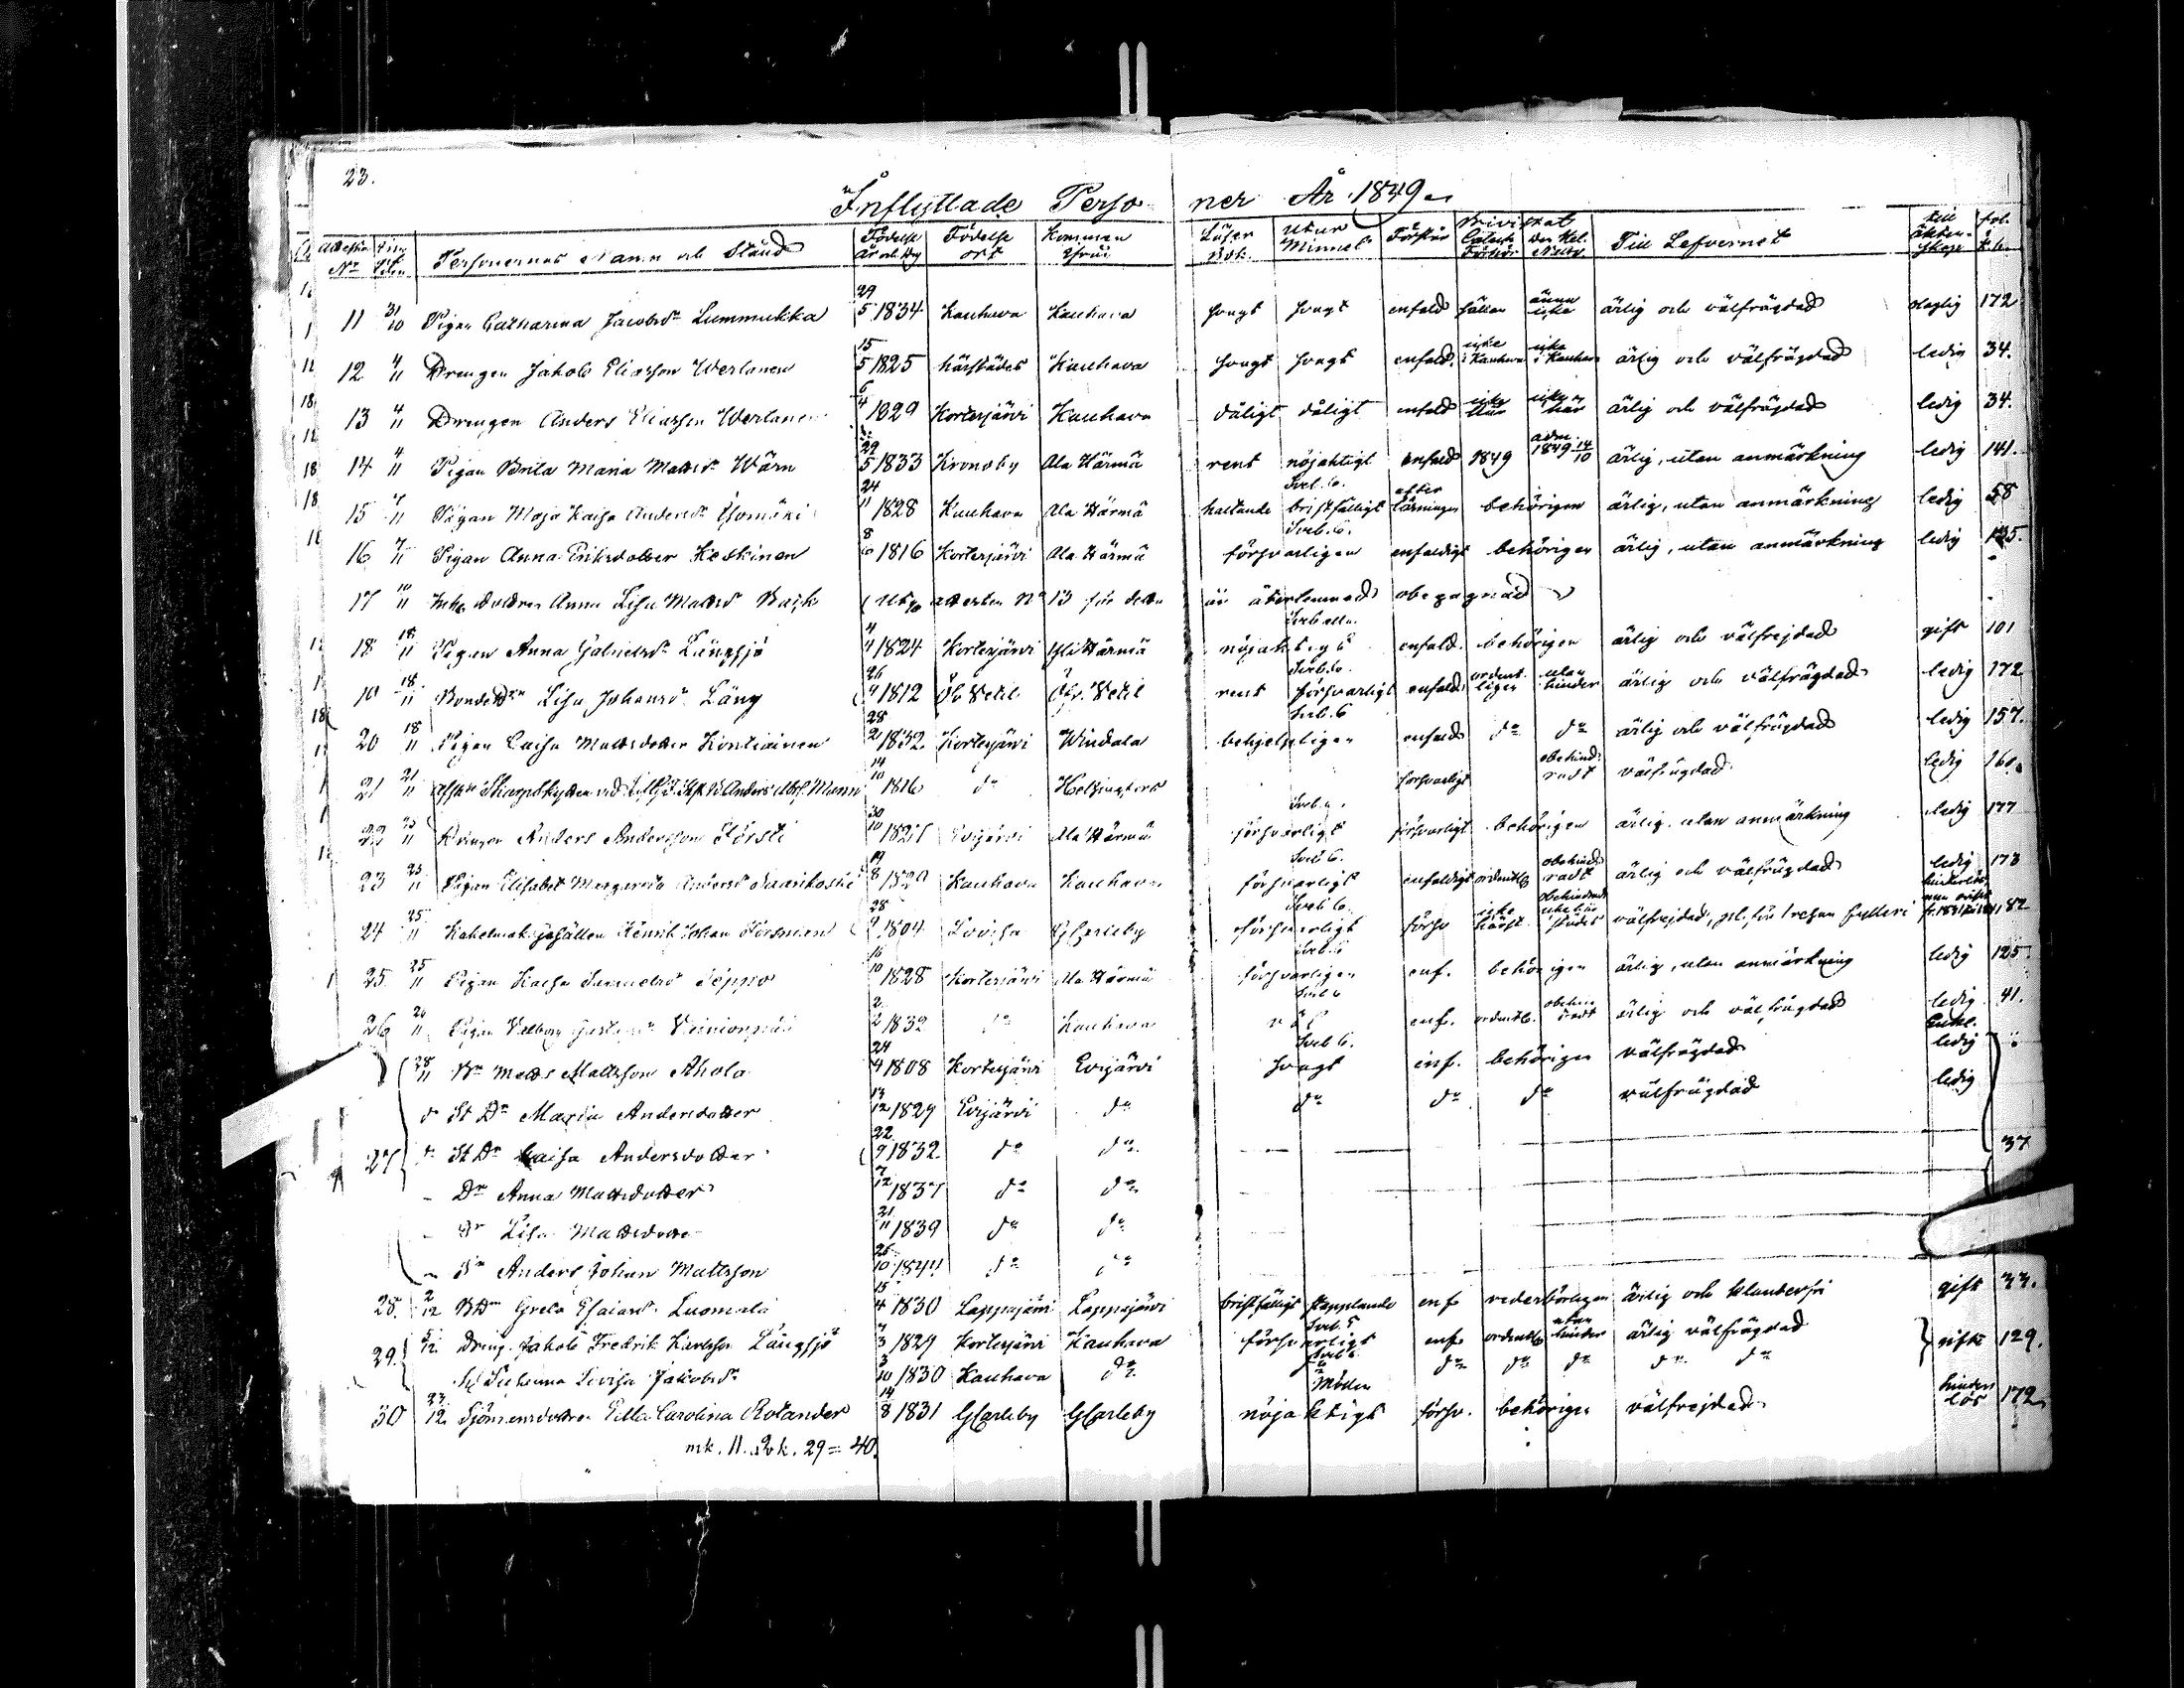 23.
Inflyttade Personer År 1849
Attestens No Personernas Namn och Stånd Födelse År och Dag Födelse ort Kommen ifrån Läser Bok. Utur Minnet Förstår Till Lefvernet Till äktenskap fol.
11 31/10 Pigan Catharina Jacobsdr Lummukka 29/5 1834 Kauhava Kauhava svagt svagt enfald ännu icke ärlig och välfrägdad 172
12 4/11 Drengen Jakob Eliasson Werlanen 15/5 1825 härstädes Kauhava svagt svagt enfald. icke i Kauhava icke i Kauhava ärlig och välfrägdad ledig 34.
13 4/11 Drengen Anders Eliasson Werlanen 6/4 1829 Kortesjärvi Kauhava dåligt dåligt enfald icke här icke här ärlig och välfrägdad ledig 34.
14 4/11 Pigan Brita Maria Mattsdr Wärn 29/5 1833 Kronoby Ala Härmä rent nöjaktigt enfald 1849 adm. 1849 14/10 ärlig, utan anmärkning ledig 141.
15 Pigan Maja Kaisa Andersdr 24/11 1828 Kauhava Ala Härmä haltande bristfälligt Sveb. 6. efter läsningen behörigen ärlig, utan anmärkning ledig 58
16 Pigan Anna Eriksdotter Keskinen 8/6 1816 Kortesjärvi Ala Härmä försvarligen Sveb. 6. enfaldigt behörigen ärlig, utan anmärkning ledig 125.
17 10/11 Anna Lisa Mattsd Back attesten No 13 för detta är återlemnad obegagnad
18 18/11 Pigan Anna Gabrielsdr Långsjö 4/4 1824 Kortesjärvi Yli Härmä nöjaktigt enfald. behörigen ärlig och välfrejdad gift 101
19 18/11 Bondedr Lisa Johansdr Lång 26/4 1812 Öfv. Vetil Öfv. Vetil rent försvarligt Sveb. 6. enfald ordentligen utan hinder ärlig och välfrägdad ledig 172
20 18/11 Pigan Caisa Mattsdotter Kontiainen 28/2 1832 Kortesjärvi Windala behjelpligen Sveb. 6 enfald do do ärlig och välfrägdad ledig 157.
21 21/11 Anders Adolf Mann 14/10 1816 do Helsingfors försvarligt obehindradt välfrägdad ledig 160.
22 23/11 Drengen Anders Andersson Försti 30/10 1827 Evijärvi Ala Härmä försvarligt försvarligt behörigen ärlig utan anmärkning ledig 177
23 23/11 Pigan Elisabet Margareta Andersdr Saarikoski 19/8 1829 Kauhava Kauhava försvarligt Sveb 6. enfaldigt ordentlig obehindradt ärlig och välfrägdad ledig 173
24 25/11 Kakelmak. gesällen Henrik Johan Forsman 28/9 1804 Lovisa GCarleby försvarligt Sveb 6. försv 182
25 25/11 Pigan Kaisa Samuelsdr Seppo 16/10 1828 Kortesjärvi Ala Härmä försvarligen Sveb. 6 enf. behörigen ärlig, utan anmärkning ledig 125
26 Pigan Valborg 2/2 1832 do Kauhava Sveb 6 enf. ordentlig. ärlig och välfrägdad ledig 41.
28/11 Bn Matts Mattsson Ahola 24/4 1808 Kortesjärvi Evijärvi svagt Sveb 6. enf. behörigen välfrägdad Enkl. ledig
do St Dr Maria Andersdotter 13/12 1829 Evijärvi do do do do välfrägdad ledig
27 do St Dr Caisa Andersdotter 22/9 1832 do do 37
- Dr Anna Mattsdotter 7/12 1837 do do
- Dr Lisa Mattsdotter 21/11 1839 do do
- Sn Anders Johan Mattsson 26/10 1844 do do
28. 2/12 Greta Esaiasdr Luomala 15/4 1830 Lappajärvi Lappajärvi bristfälligt stapplande enf. vederbörligen ärlig och klanderfri gift 33.
29. 5/12 Dreng. Jakob Fredrik Karlsson Långsjö 7/3 1829 Kortesjärvi Kauhava försvarligt Sveb. 5 enf. ordentlig utan hinder ärlig välfrägdad gifte 129.
Lovisa Jakobsdr 3/10 1830 Kauhava do do do do do do
30 23/12 Sjömansdottren Carolina Rolander 14/8 1831 GCarleby GCarleby nöjaktigt Möller försv. behörigen välfrejdad hinderlös 172
mk. 11. Qvk. 29 = 40.